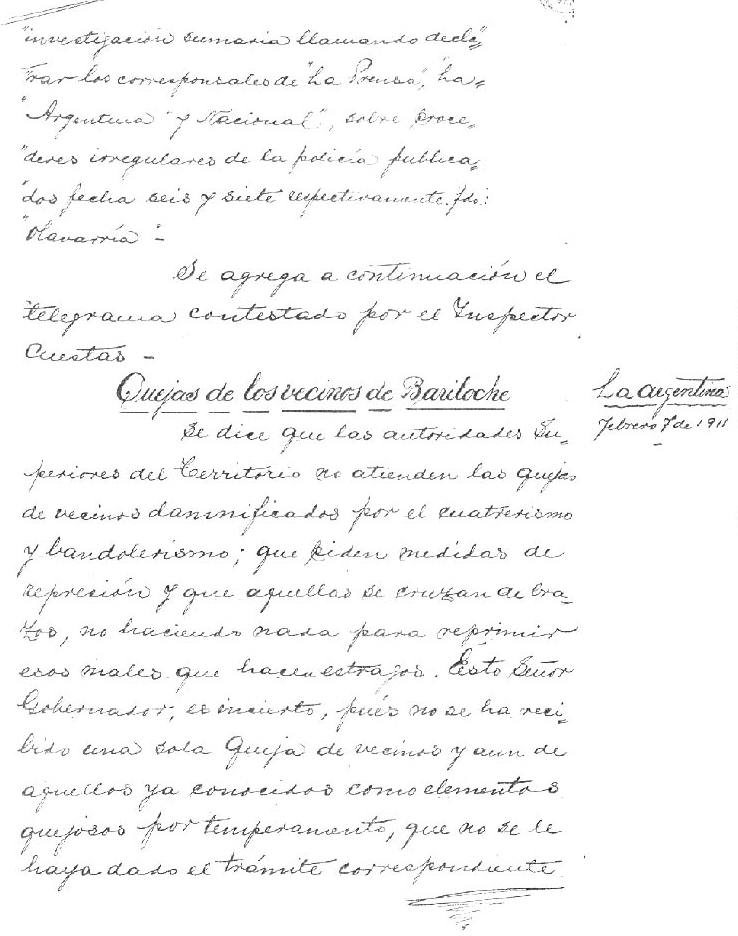 "investigación sumaria llamando decla-
"rar los corresponsales de "La Prensa", "La
"Argentina" y Nacional", sobre proce-
"deres irregulares de la policía publica-
"dos fecha seis y siete respectivamente. fdo:
"Olavarría" -
Se agrega a continuación el
telegrama contestado por el Inspector
Cuestas -
Quejas de los vecinos de Bariloche
La Argentina
Febrero 7 de 1911
Se dice que las autoridades Su-
periores del Territorio no atienden las quejas
de vecinos damnificados por el cuatrerismo
y bandolerismo; que piden medidas de
represión y que aquellas se cruzan de bra-
zos, no haciendo nada para reprimir
esos males que hacen estragos. Esto Señor
Gobernador, es incierto, pués no se ha reci-
bido una sola queja de vecinos y aun de
aquellos ya conocidos como elementos
quejosos por temperamento, que no se le
haya dado el trámite correspondiente